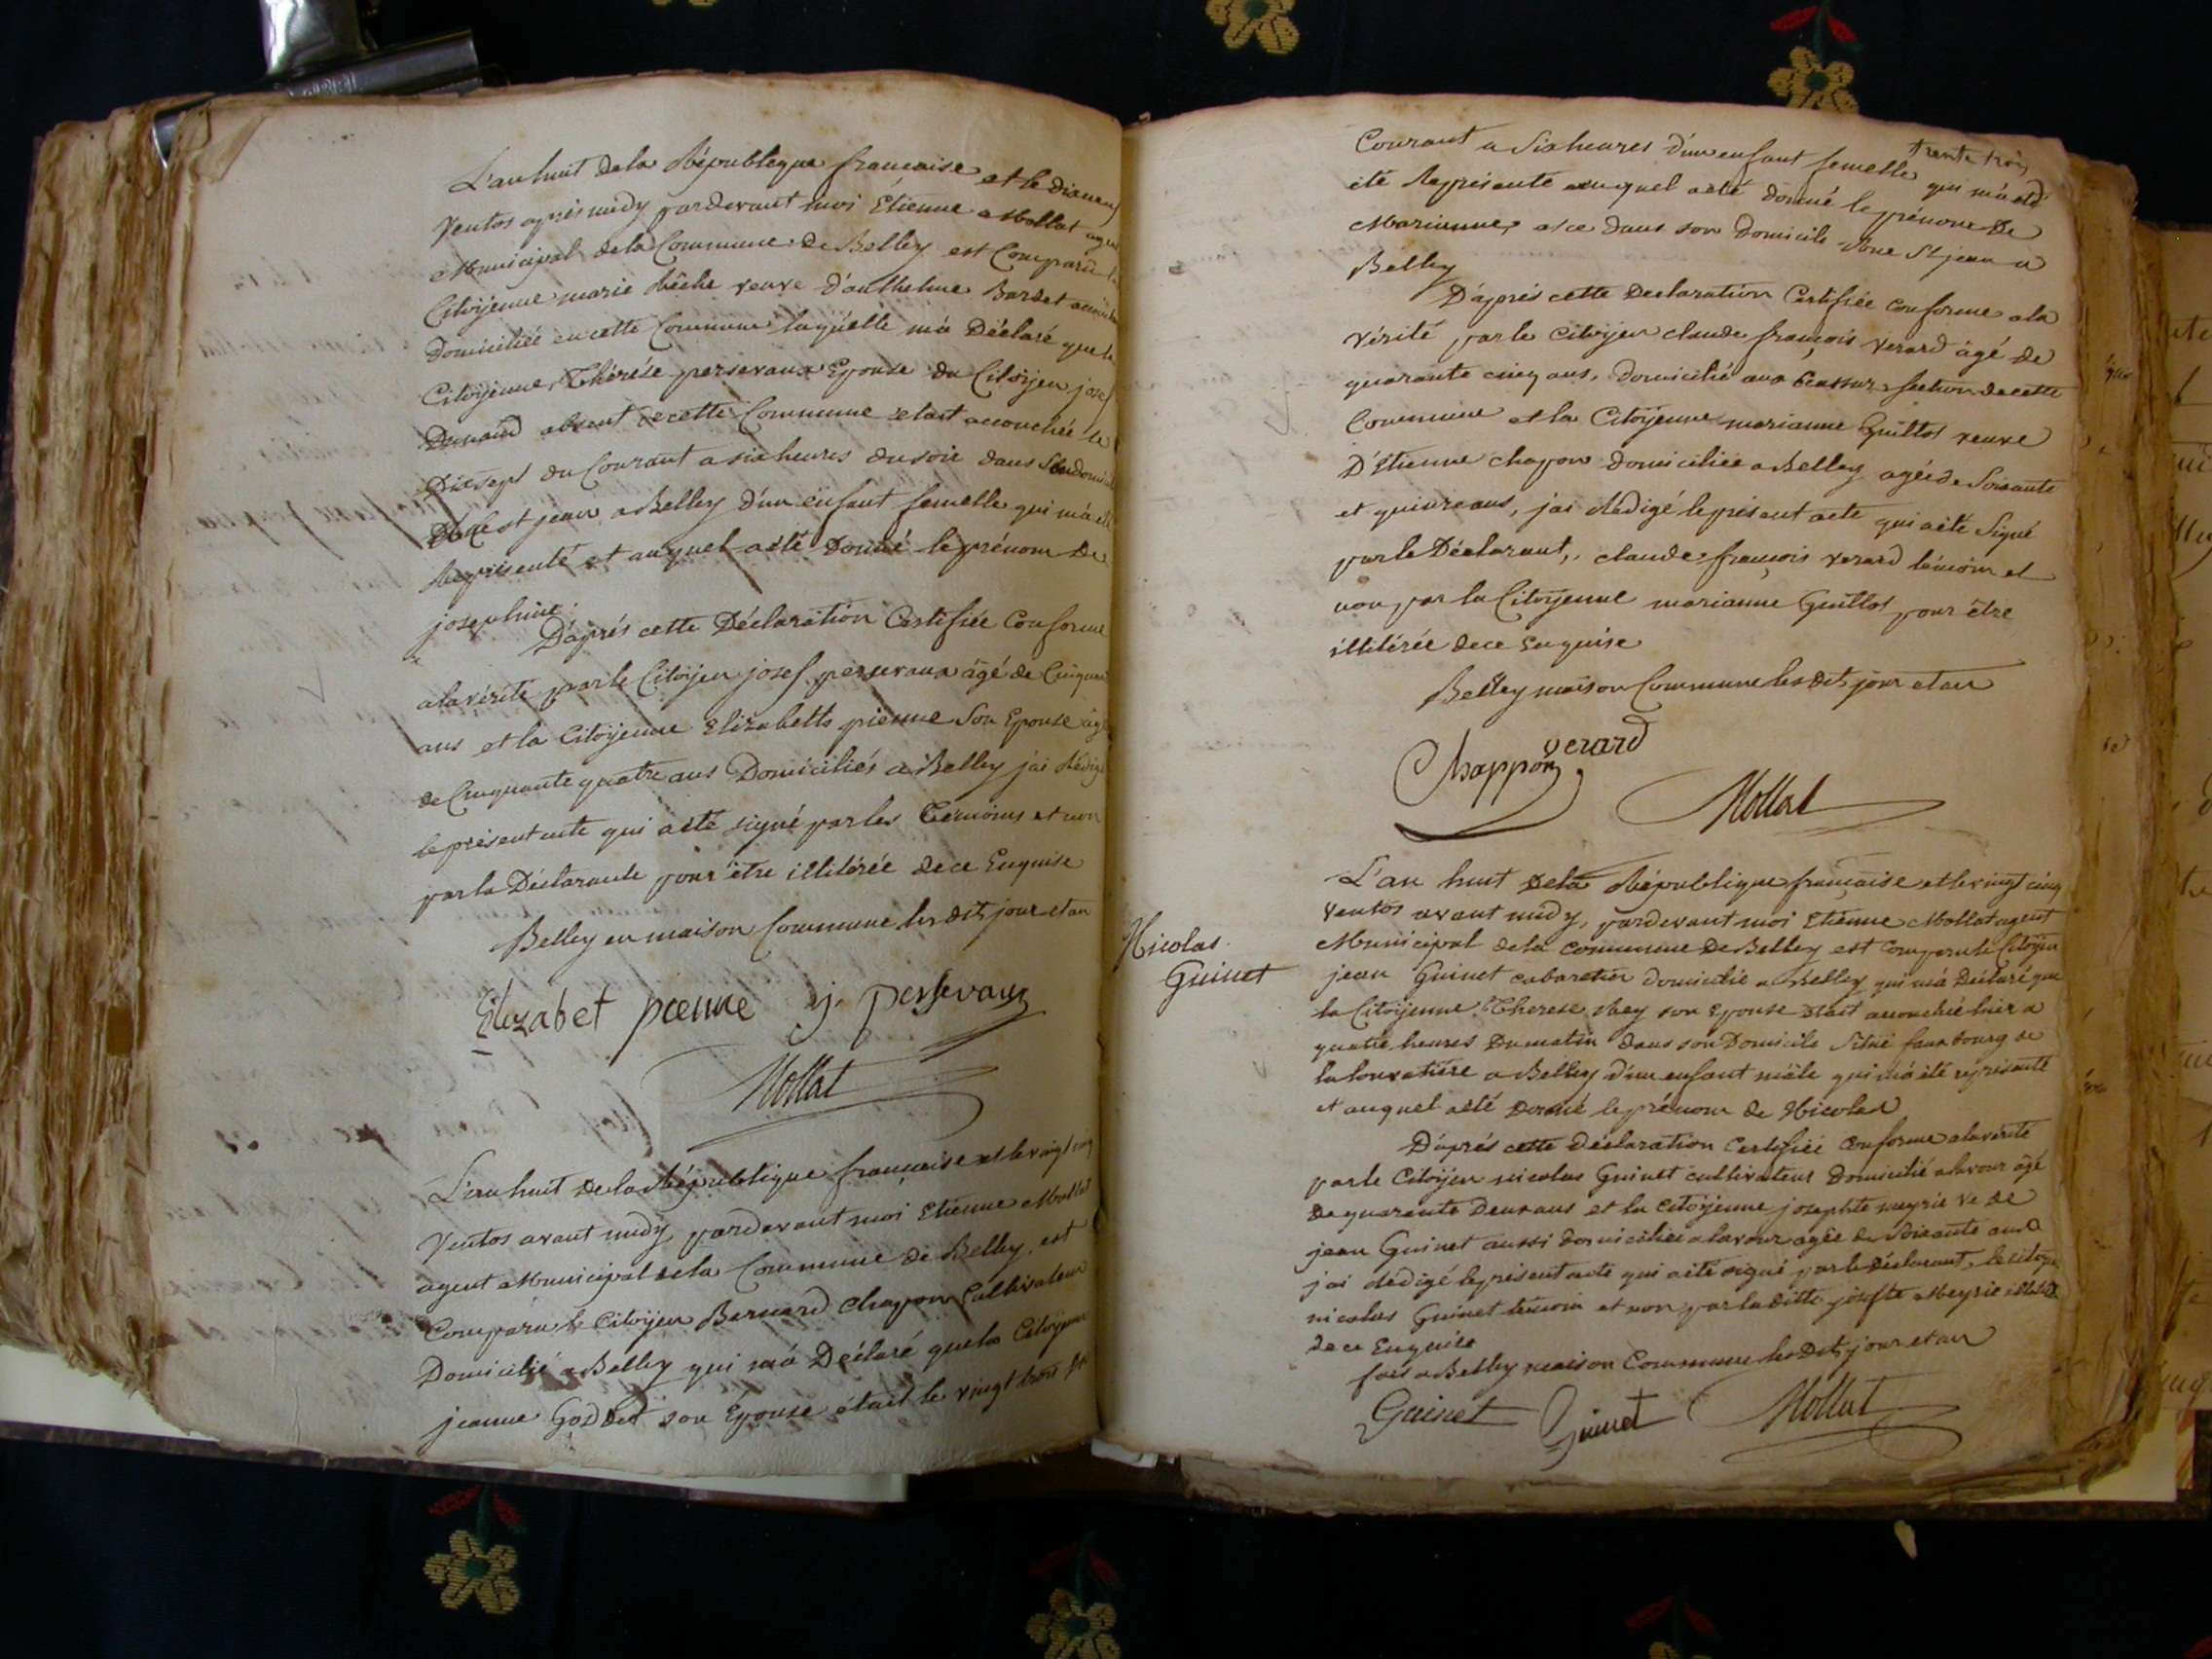 L'an huit dela République francaise et le dixneuf
Ventos après midy pardevant moi Étienne Mollat agent
Municipal dela Commune de Belley est Comparu la
Citoyenne marie veuve d'anthelme Bardet
Domiciliée en cette Commune laquelle m'a Déclaré que la
Citoyenne Thérése persevaux Epouse du Citoyen josef
Dunand absent de cette Commune etait accouchée le
Dixsept du Courant a six heures du soir dans Son domicile
st jean a Belley d'un enfant femelle qui m'a été
Représenté et auquel a été Donné le prénom De
josephine
D'après cette Déclaration Certifiée Conforme
ala vérité par le Citoyen josef persevaux âgé de Cinquante
ans et la Citoyenne Elizabeth pienne Son Epouse âgée
de Cinquante quatre ans Domiciliés a Belley j'ai Rédigé
le présent acte qui a été signé par les Témoins et non
par la Déclarante pour être illitérée de ce Enquise
Belley en maison Commune les dits jour et an
Elizabet pienne j. perssevaux
Mollat
L'an huit dela République française et le vingt cinq
Ventos avant midy pardevant moi Etienne Mollat
agent Municipal dela Commune de Belley est
Comparu le Citoyen Bernard Chapon Cultivateur
Domicilié a Belley qui m'a Déclaré que la Citoyenne
jeanne Goddet son Épouse était le vingt trois
trente trois
Courant a Six heures d'un enfant femelle qui m'a été
été Représenté auquel a été donné le prénom De
Marianne, et ce dans son domicile Rue St jean a
Belley
D'après cette Declaration Certifiée Conforme ala
Vérité par le Citoyen claude françois verard âgé de
quarante cinq ans, Domicilié aux section de cette
Commune et la Citoyenne marianne Guillot veuve
D'Etienne chapon domiciliée a Belley agée de Soixante
et quinze ans, j'ai Rédigé le présent acte qui a été Signé
par le Déclarant, claude françois verard témoin et
non par la Citoyenne marianne Guillot pour être
illitérée de ce Enquise
Belley maison Commune les dits jour et an
Chappon verard
Mollat
Nicolas
Guinet
L'an huit Dela République française et le vingt cinq
Ventos avant midy, pardevant moi Etienne Mollat agent
Municipal dela commune De Belley est Comparu le Citoyen
jean Guinet cabaretier domicilié a Belley qui m'a Déclaré que
la Citoyenne Therese Rey son Epouse etait accouchée hier a
quatre heures Du matin dans son Domicile Situé fauxbourg de
la louvatière a Belley d'un enfant mâle qui m'a été représenté
et auquel a été donné le prénom de Nicolas
D'après cette déclaration Certifiée Conforme ala vérité
par le Citoyen nicolas Guinet cultivateur Domicilié a lavour âgé
De quarante Deux ans et la citoyenne josephte meyrie ve de
jean Guinet aussi domiciliée a lavour agée de Soixante ans
j'ai redigé le présent acte qui a été signé par le Déclarant, le citoyen
nicolas Guinet témoin et non par la ditte josefte Meyrie illitérée
de ce Enquise
fait a Belley maison Commune les Dits jour et an
Guinet Guinet Mollat